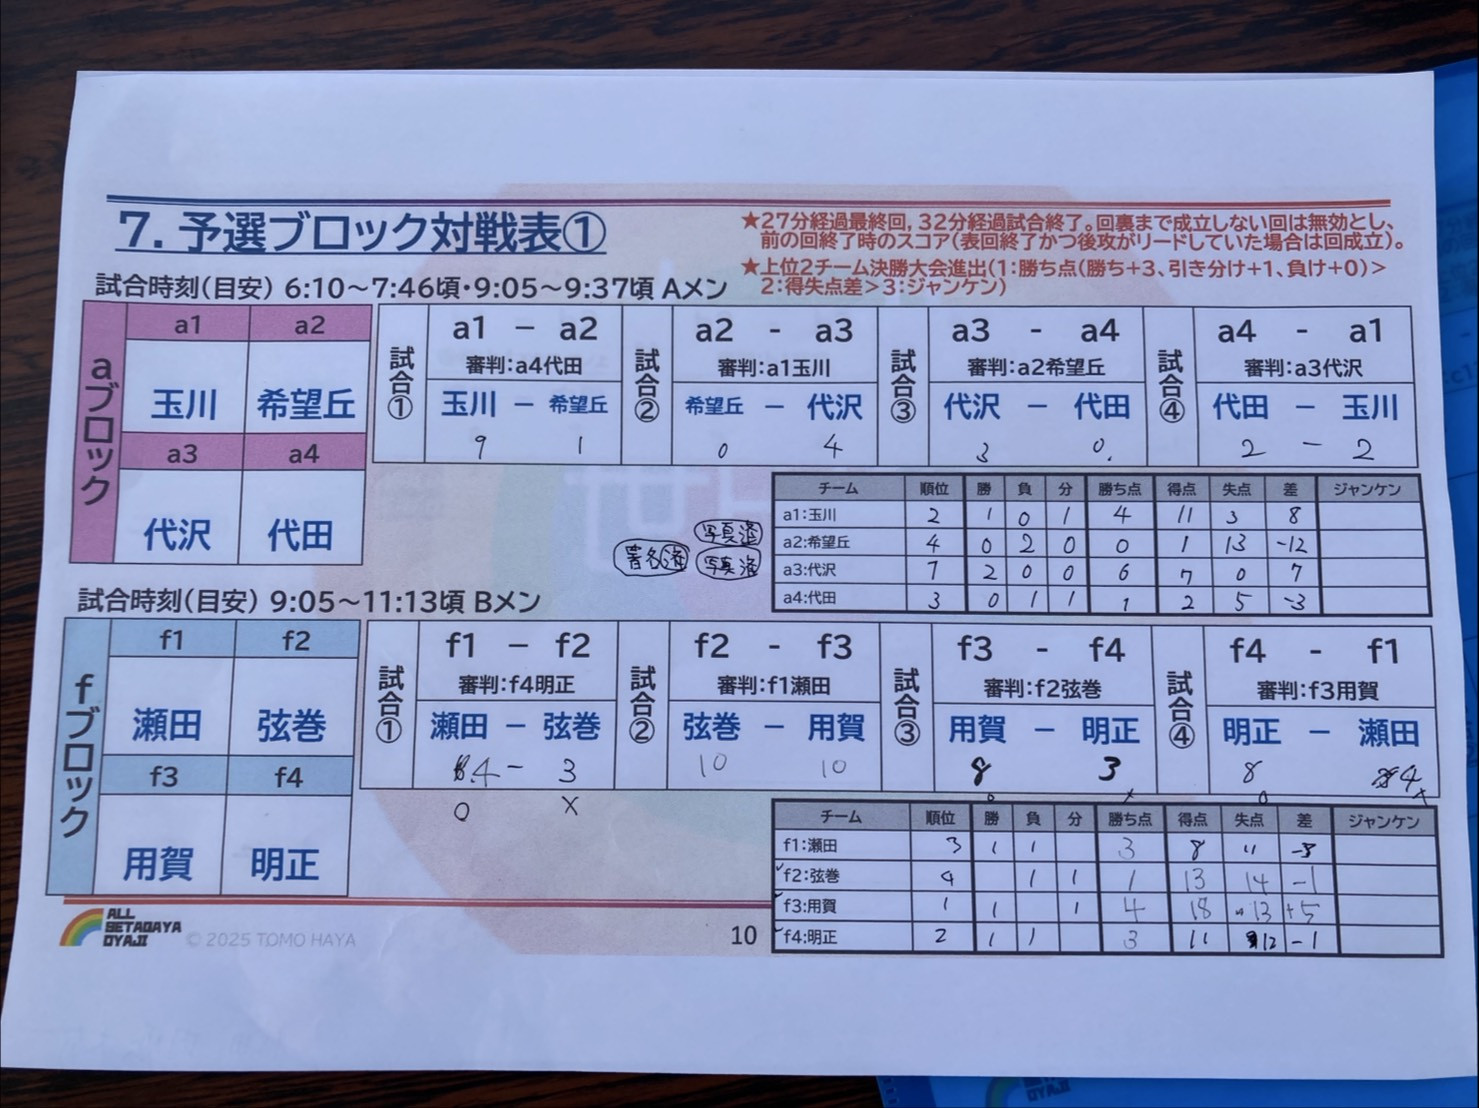 7. 予選ブロック対戦表①
★27分経過最終回，32分経過試合終了。回裏まで成立しない回は無効とし、
前の回終了時のスコア（表回終了かつ後攻がリードしていた場合は回成立）。
★上位2チーム決勝大会進出（1：勝ち点（勝ち+3、引き分け+1、負け+0）>
2：得失点差>3：ジャンケン）
試合時刻（目安） 6:10～7:46頃・9:05～9:37頃 Aメン
aブロック
a1 a2
玉川 希望丘
a3 a4
代沢 代田
試合①
a1 － a2
審判：a4代田
玉川 － 希望丘
9 1
試合②
a2 - a3
審判：a1玉川
希望丘 － 代沢
0 4
試合③
a3 - a4
審判：a2希望丘
代沢 － 代田
3 0.
試合④
a4 - a1
審判：a3代沢
代田 － 玉川
2 － 2
写真済
署名済 写真済
チーム 順位 勝 負 分 勝ち点 得点 失点 差 ジャンケン
a1：玉川 2 1 0 1 4 11 3 8
a2：希望丘 4 0 2 0 0 1 13 -12
a3：代沢 1 2 0 0 6 7 0 7
a4：代田 3 0 1 1 1 2 5 -3
試合時刻（目安） 9:05～11:13頃 Bメン
fブロック
f1 f2
瀬田 弦巻
f3 f4
用賀 明正
試合①
f1 － f2
審判：f4明正
瀬田 － 弦巻
4 － 3
○ ×
試合②
f2 - f3
審判：f1瀬田
弦巻 － 用賀
10 10
試合③
f3 - f4
審判：f2弦巻
用賀 － 明正
8 3
○ ×
試合④
f4 - f1
審判：f3用賀
明正 － 瀬田
8 4
○ ×
チーム 順位 勝 負 分 勝ち点 得点 失点 差 ジャンケン
f1：瀬田 3 1 1 3 8 11 -3
f2：弦巻 4 1 1 1 13 14 -1
f3：用賀 1 1 1 4 18 13 +5
f4：明正 2 1 1 3 11 12 -1
ALL
SETAGAYA
OYAJI
© 2025 TOMO HAYA
10